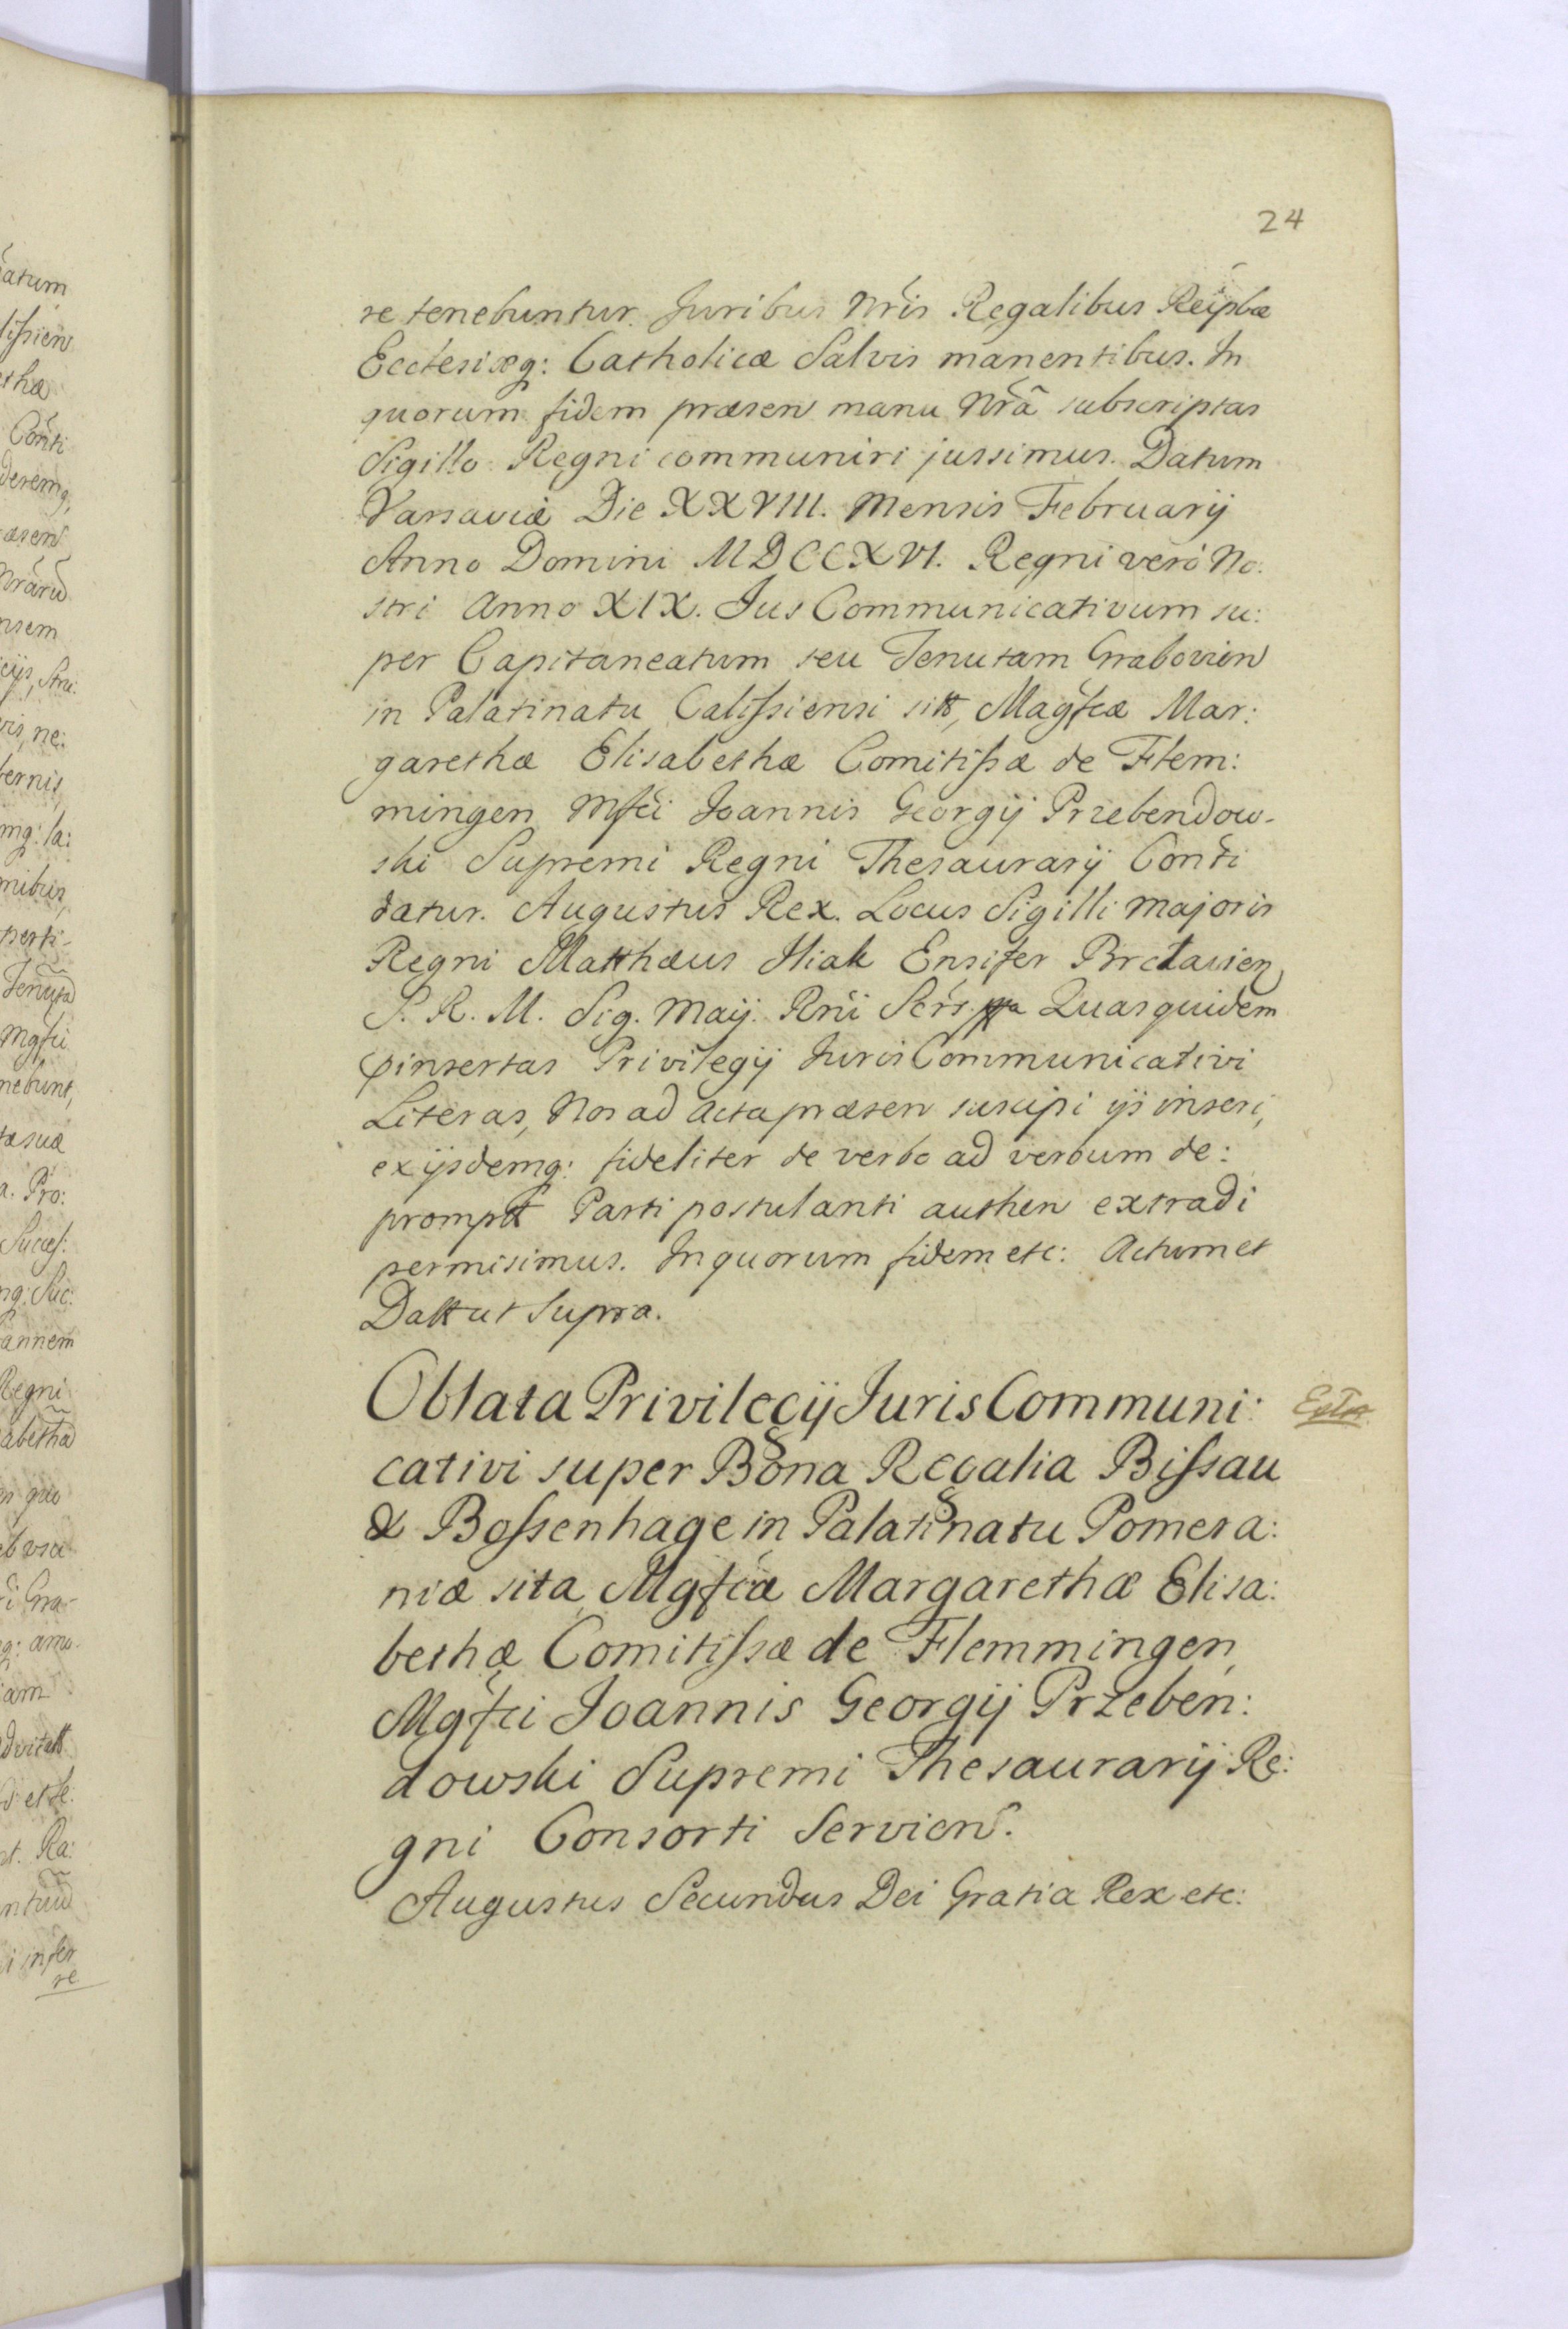 24
re tenebuntur. Juribus Nris Regalibus Reipbæ
Ecclesiæq: Catholicæ Salvis manentibus. In
quorum fidem præsen manu Nrã subscriptas
Sigillo Regni communiri jussimus. Datum
Varsaviæ Die XXVIII. Mensis Februarij
Anno Domini MDCCXVI. Regni verò No:
stri Anno XIX. Jus Communicativum su:
per Capitaneatum seu Tenutam Grabovien
in Palatinatu Calissiensi sitt, Magfcæ Mar:
garethæ Elisabethæ Comitissæ de Flem:
mingen Mfci Joannis Georgij Przebendow-
ski Supremi Regni Thesaurarij Conti
datur. Augustus Rex. Locus Sigilli Majoris
Regni Matthæus Iliak Ensifer Brclavien
S. R. M. Sig. Maij. Rni Scrs ppa Quas quidem
pinsertas Privilegij Juris Communicativi
Literas, Nos ad Acta præsen suscipi ijs inseri,
ex ijsdemq: fideliter de verbo ad verbum de:
prompt Parti postulanti authen extradi
permisimus. In quorum fidem etc: Actum et
Datt ut Supra.
Oblata Privilegij Juris Communi:
cativi super Bona Regalia Bissau
& Bossenhage in Palatinatu Pomera:
niæ sita Mgfcæ Margarethæ Elisa:
bethæ Comitissæ de Flemmingen,
Mgfci Joannis Georgij Przeben:
dowski Supremi Thesaurarij Re:
gni Consorti Servien.
Augustus Secundus Dei Gratia Rex etc: